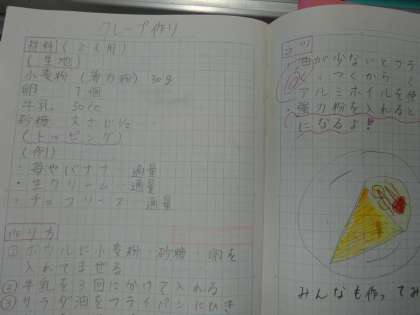 クレープ作り
材料(2人用)
(生地)
小麦粉(薄力粉) 30g
卵 1個
牛乳 50cc
砂糖 大さじ1/2
(トッピング)
(例)
・苺やバナナ 適量
・生クリーム 適量
・チョコソース 適量
作り方
①ボウルに小麦粉・砂糖・卵を
入れてまぜる
②牛乳を3回に分けて入れる
③サラダ油をフライパンにひき
コツ
油が少ないとフラ
くっつくから
アルミホイルを使
強力粉を入れると
になるよ!!
みんなも作ってみ